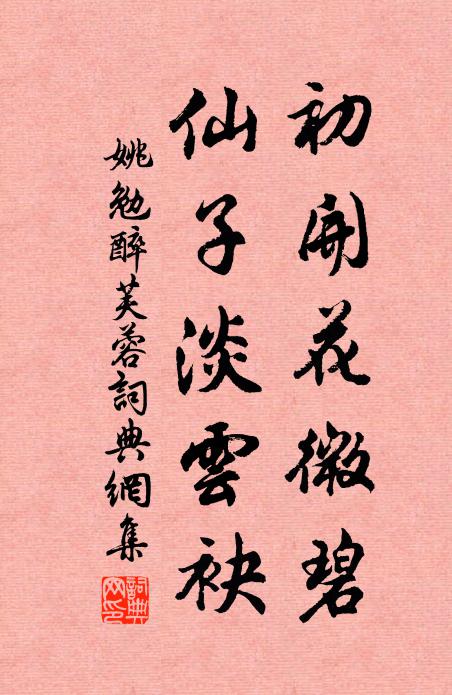 初開花微碧
仙子淡雲袂
姚勉醉芙蓉詞典網集
詞典網印